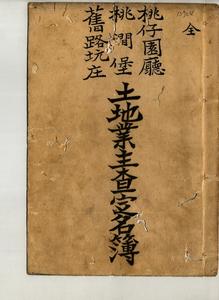 全
桃仔園廳
桃澗堡
舊路坑庄
土地業主查定名簿